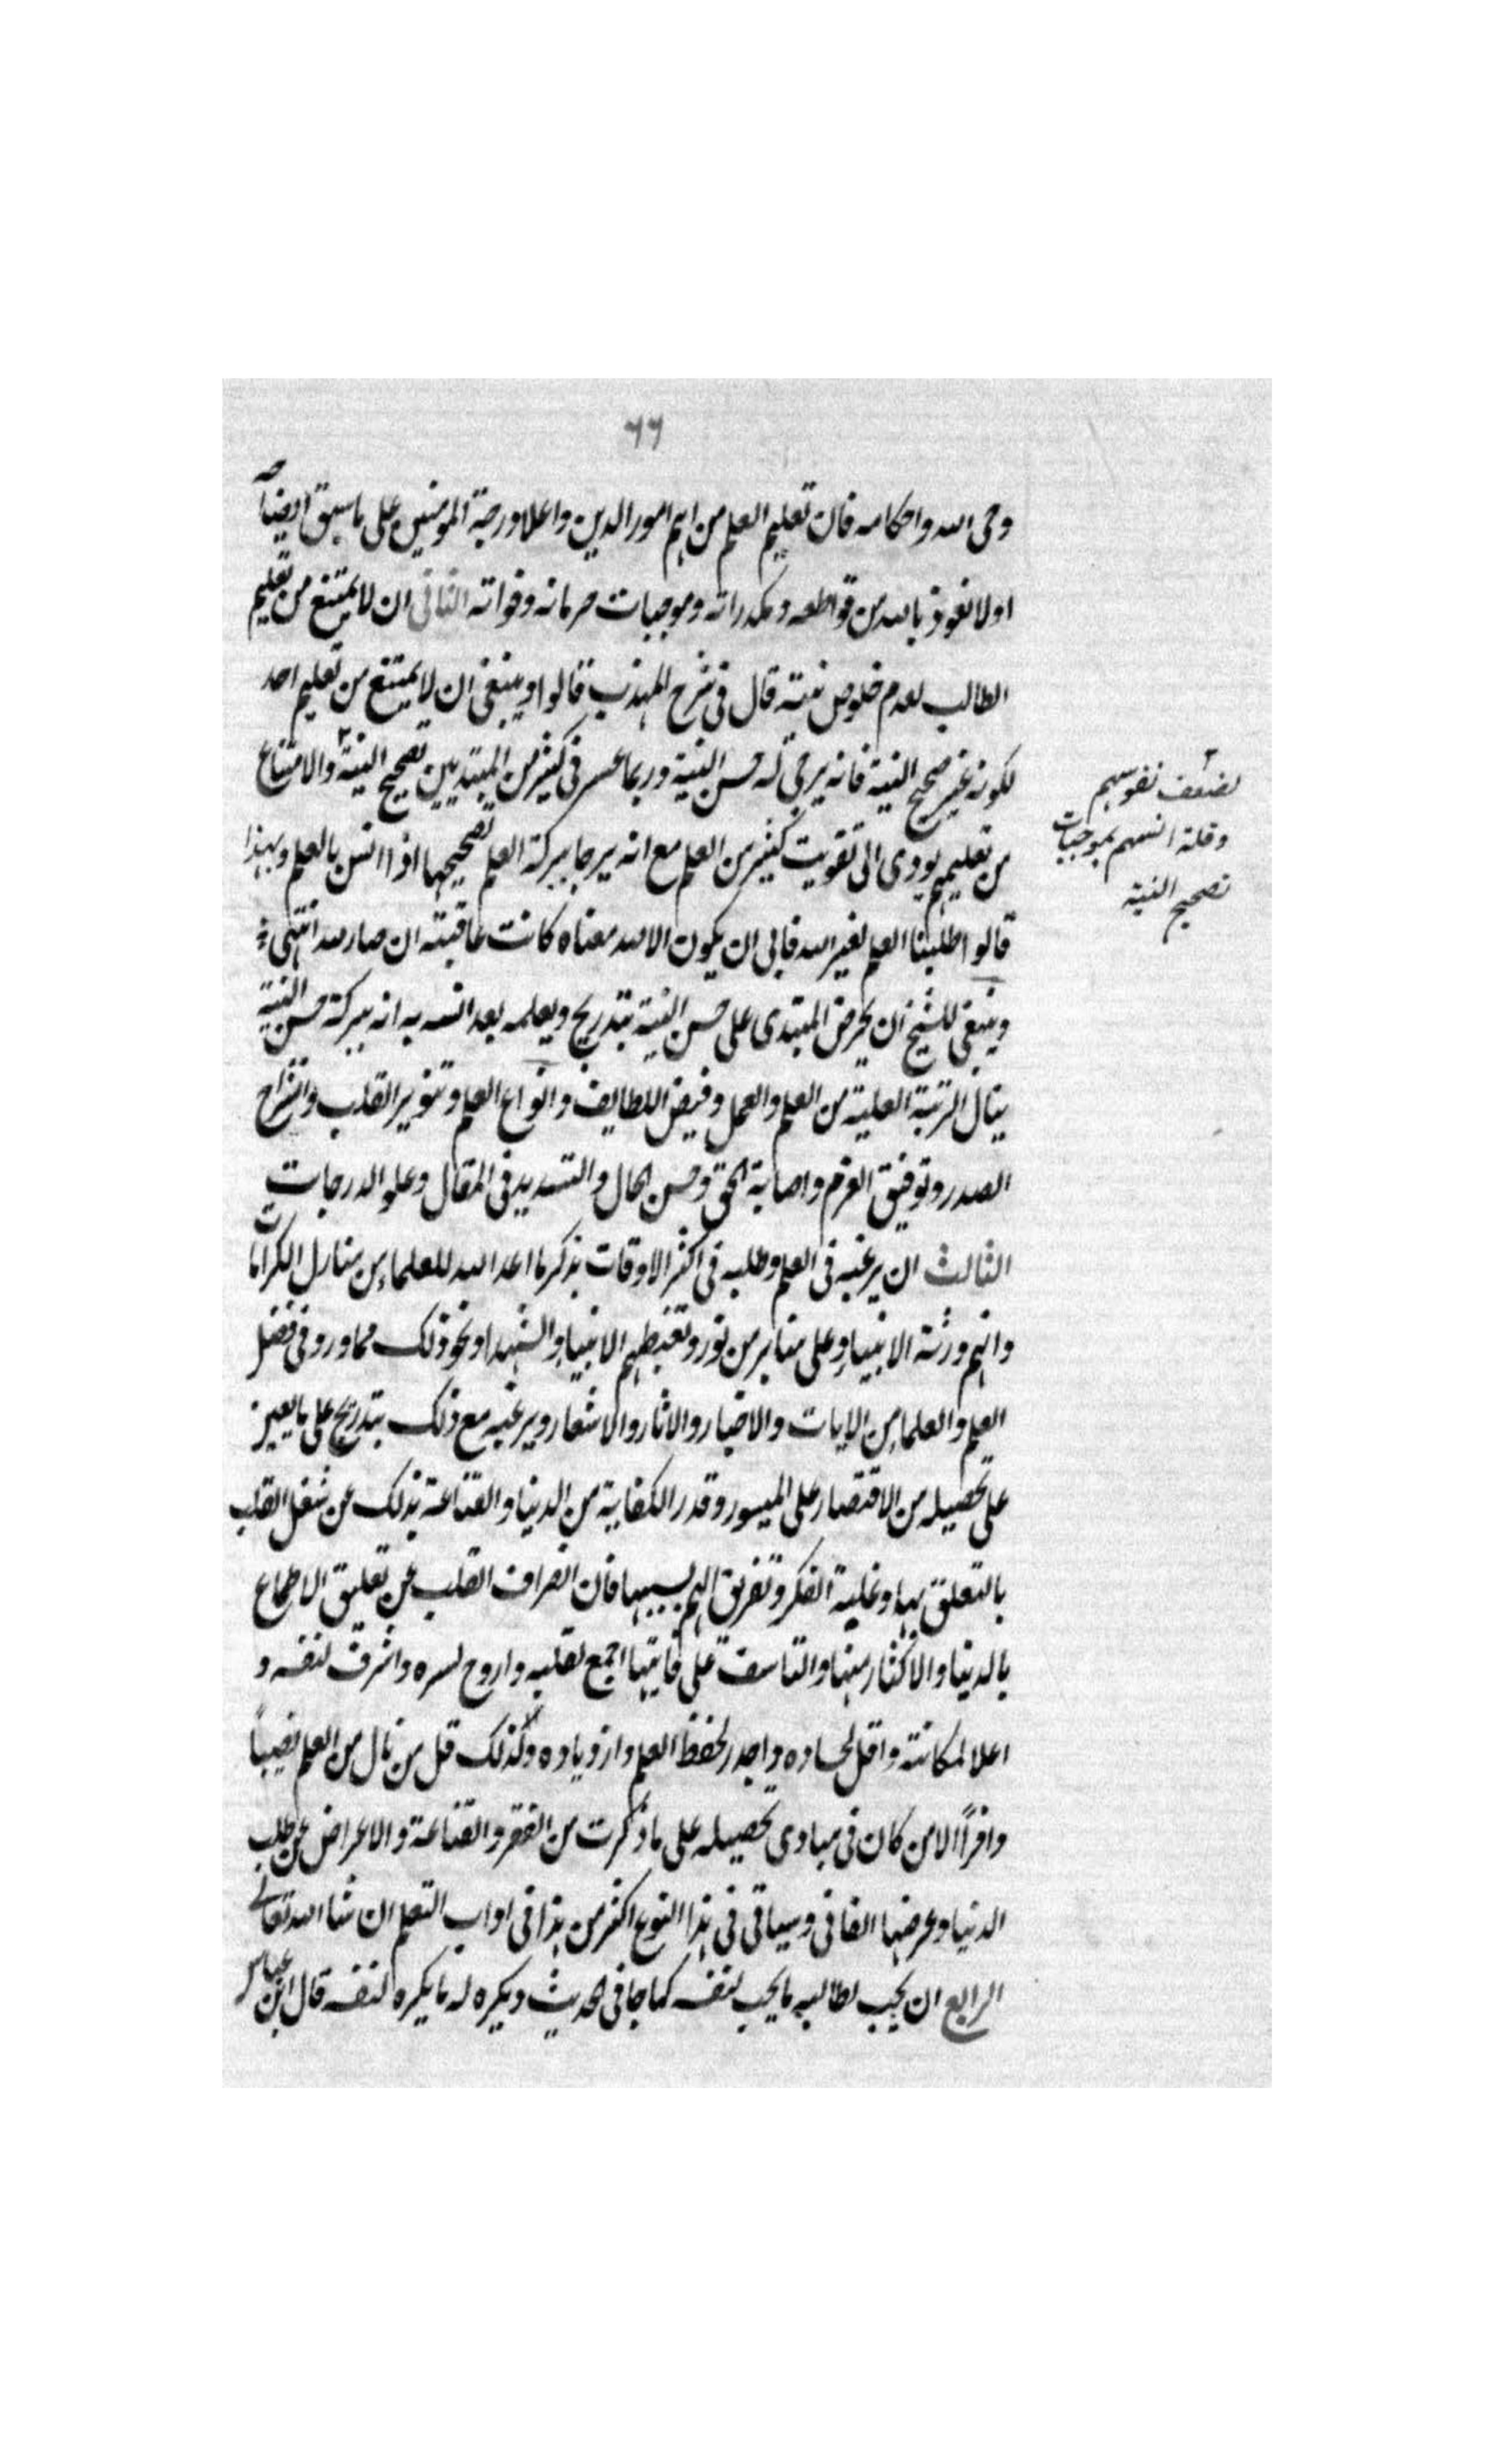 ٦٦
وحى الله واحكامه فان تعليم العلم من اهم امور الدين واعلا درجة المومنين على ما سبق ايضاحه
اولا نعوذ بالله من قواطعه ومكدراته وموجبات حرمانه وفواته الثانى ان لا يمتنع من تعليم
الطالب لعدم خلوص نيته قال فى شرح المهذب قالوا وينبغى ان لا يمتنع من تعليم احد
لكونه غير صحيح النية فانه يرجى له حسن النية وربما عسر فى كثير من المبتديين تصحيح النية والامتناع
لضعف نفوسهم
وقلة انسهم بموجبات
تصحيح النية
من تعليمهم يودى الى تفويت كثير من العلم مع انه يرجا ببركة العلم تصحيحها اذا انس بالعلم وبهذا
قالوا طلبنا العلم لغير الله فابى ان يكون الا لله معناه كانت عاقبته ان صار لله انتهى
وينبغى للشيخ ان يحرض المبتدى على حسن النية بتدريج ويعلمه بعد انسه به انه ببركة حسن النية
ينال الرتبة العلية من العلم والعمل وفيض اللطايف وانواع العلم وتنوير القلب وانشراح
الصدر وتوفيق العزم واصابة الحق وحسن الحال والتسديد فى المقال وعلو الدرجات
الثالث ان يرغبه فى العلم وطلبه فى اكثر الاوقات بذكر ما اعد الله للعلماء من منازل الكرامات
وانهم ورثة الانبياء وعلى منابر من نور وتغبطهم الانبياء والشهدا ونحو ذلك مما ورد فى فضل
العلم والعلماء من الايات والاخبار والاثار والاشعار ويرغبه مع ذلك بتدريج على ما يعين
على تحصيله من الاقتصار على الميسور وقدر الكفاية من الدنيا والقناعة بذلك عن شغل القلب
بالتعلق بها وغلبة الفكر وتفريق الهم بسببها فان انصراف القلب عن تعليق الاطماع
بالدنيا والاكثار منها والتاسف على فايتها اجمع لقلبه واروح لسره واشرف لنفسه و
اعلا لمكانته واقل لحساده واجدر لحفظ العلم وازدياده ولذلك قل من نال من العلم نصيباً
وافراً الا من كان فى مبادى تحصيله على ما ذكرت من الفقر والقناعة والاعراض عن طلب
الدنيا وعرضها الفانى وسياتى فى هذا النوع اكثر من هذا فى اداب المتعلم ان شا الله تعالى
الرابع ان يحب لطالبه ما يحب لنفسه كما جا فى الحديث ويكره له ما يكره لنفسه قال ابن عباس